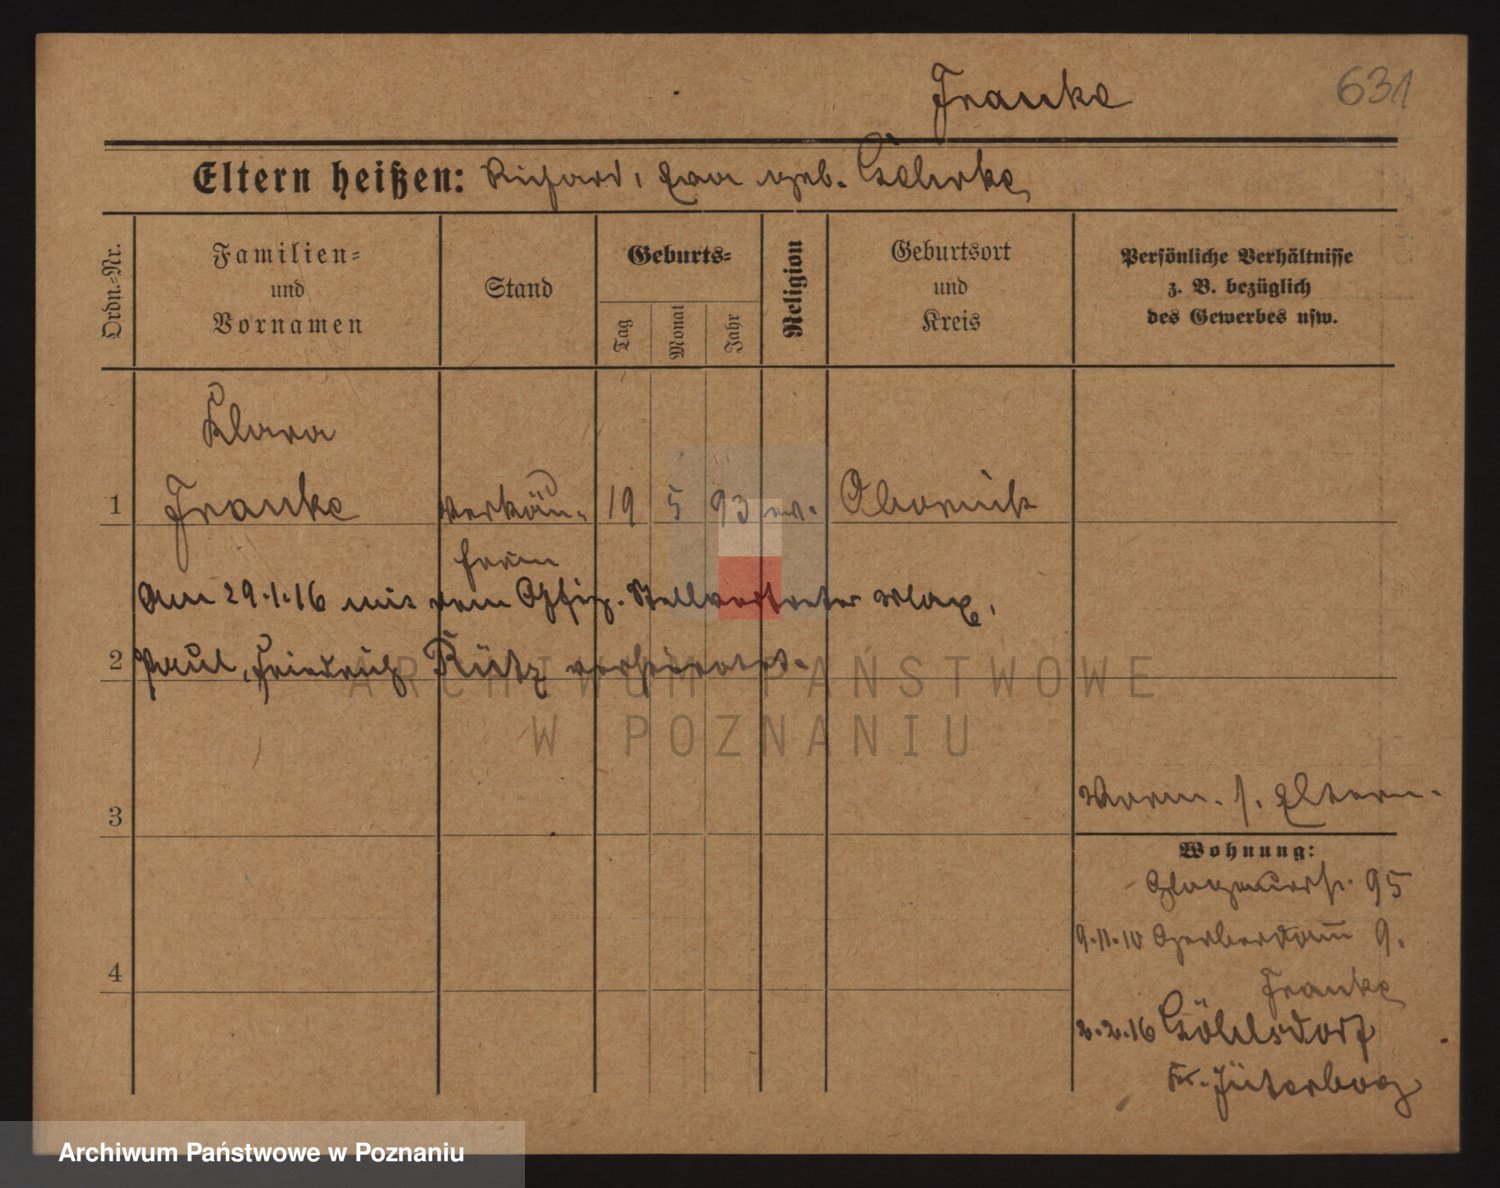 Franke
631
Eltern heißen: Richard, Eva geb. Gehrke
Ordn.-Nr.
Familien-
und
Vornamen
Stand
Geburts-
Tag
Monat
Jahr
Religion
Geburtsort
und
Kreis
Persönliche Verhältnisse
z. B. bezüglich
des Gewerbes usw.
Klara
1 Franke Verkäu- 19 5 93 ev. Obornik
ferin
Am 29.1.16 mit dem Offiz. Stellvertreter Max,
2 Paul, Friedrich Rütz verheiratet.
ARCHIWUM PAŃSTWOWE
W POZNANIU
3
Vorm. s. Eltern.
Wohnung:
Glogauerstr. 95
9.11.10 Gerberdamm 9.
4
Franke
2.2.16 Göhlsdorf
Kr. Jüterbog
Archiwum Państwowe w Poznaniu